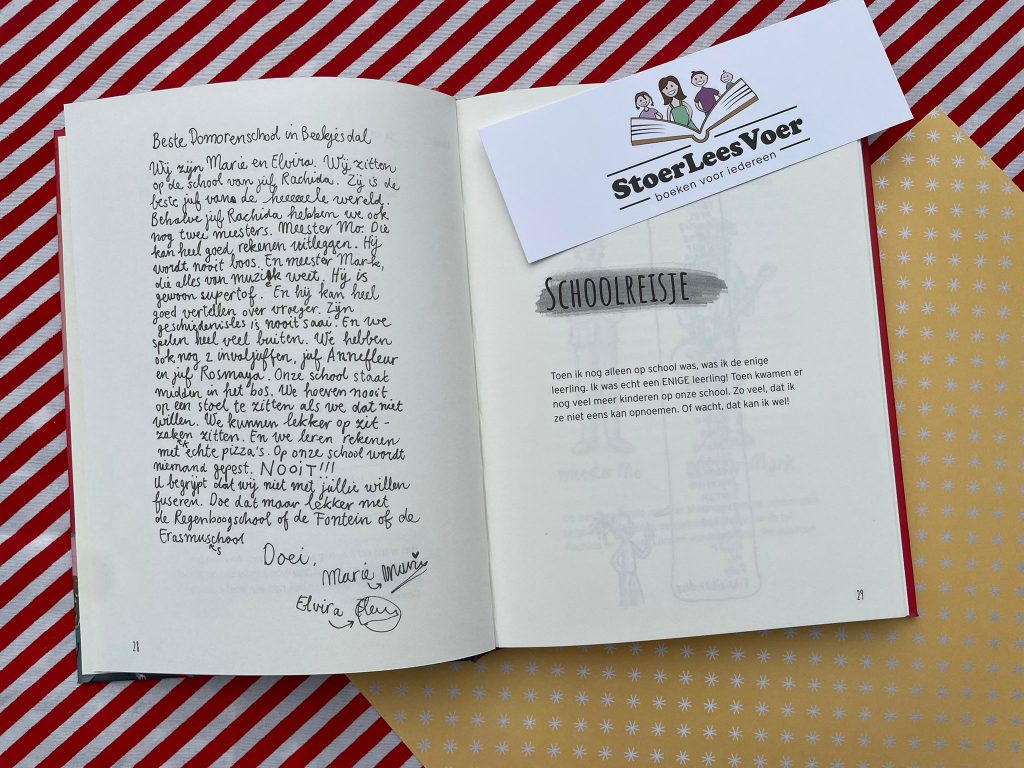 Beste Domorenschool in Beekjesdal
Wij zijn Marie en Elvira. Wij zitten
op de school van juf Rachida. Zij is de
beste juf van de heeeeele wereld.
Behalve juf Rachida hebben we ook
nog twee meesters. Meester Mo. Die
kan heel goed rekenen uitleggen. Hij
wordt nooit boos. En meester Mark,
die alles van muziek weet. Hij is
gewoon supertof. En hij kan heel
goed vertellen over vroeger. Zijn
geschiedenisles is nooit saai. En we
spelen heel veel buiten. We hebben
ook nog 2 invaljuffen, juf Annefleur
en juf Rosmaya. Onze school staat
midden in het bos. We hoeven nooit
op een stoel te zitten als we dat niet
willen. We kunnen lekker op zit-
zakken zitten. En we leren rekenen
met echte pizza's. Op onze school wordt
niemand gepest. NOOIT!!!
U begrijpt dat wij niet met jullie willen
fuseren. Doe dat maar lekker met
de Regenboogschool of de Fontein of de
Erasmusschool
Doei,
Marie Marie
Elvira
28
StoerLeesVoer
boeken voor iedereen
SCHOOLREISJE
Toen ik nog alleen op school was, was ik de enige
leerling. Ik was echt een ENIGE leerling! Toen kwamen er
nog veel meer kinderen op onze school. Zo veel, dat ik
ze niet eens kan opnoemen. Of wacht, dat kan ik wel!
29